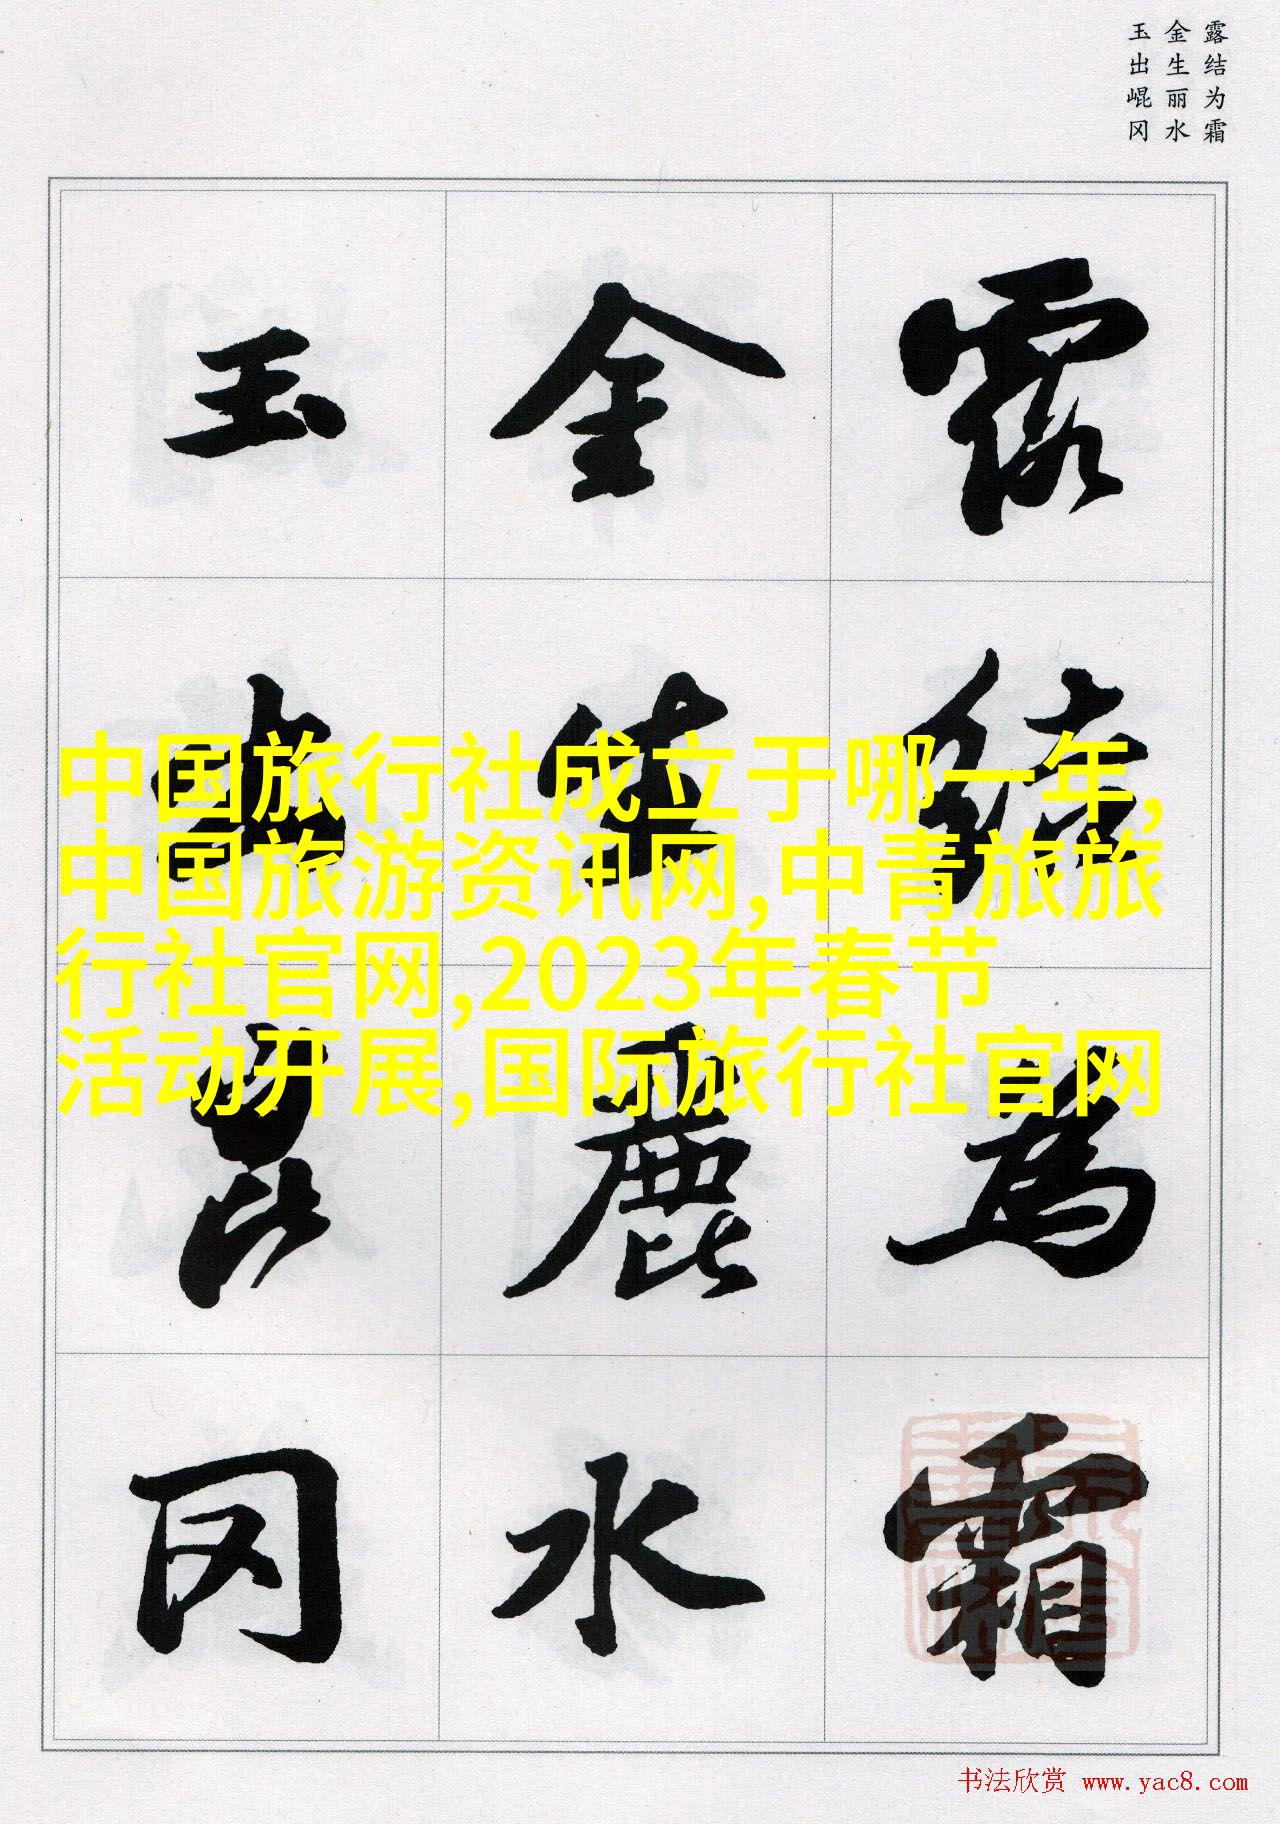 露结为霜
金生丽水
玉出崐冈
露結為霜
金生麗水
玉出崑冈
中国旅行社成立于哪一年,
中国旅游资讯网,中青旅旅
行社官网,2023年春节
活动开展,国际旅行社官网
书法欣赏 www.yac8.com